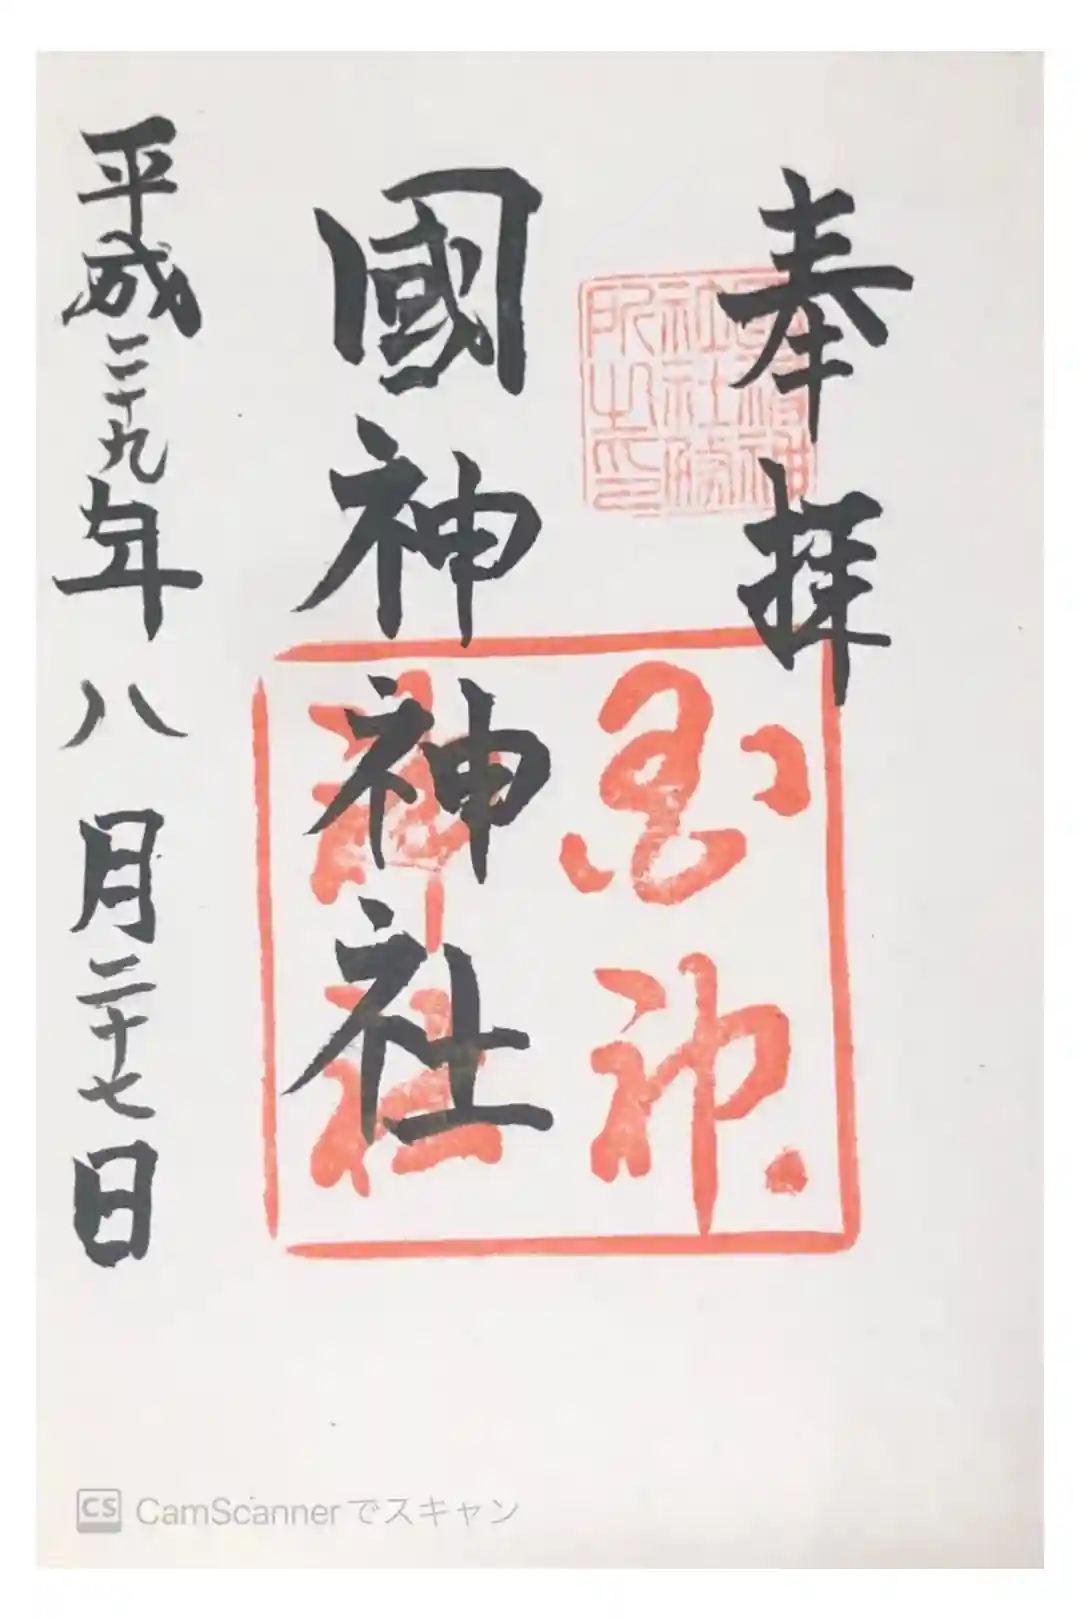 奉拝
國神神社
平成二十九年八月二十七日
神社
CS CamScannerでスキャン